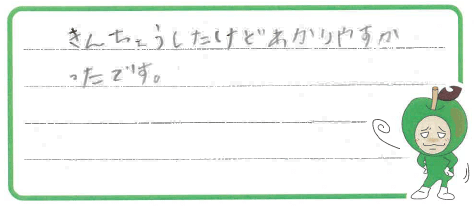 きんちょうしたけどあかりやすか
ったです。